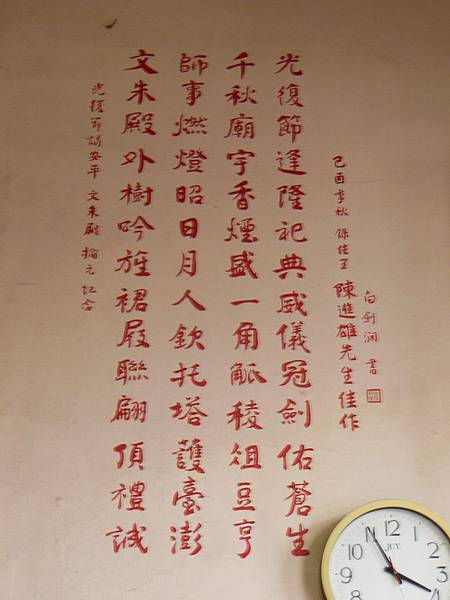 白劍瀾 書
己酉季秋 錄佳里 陳進雄先生佳作
光復節逢隆祀典威儀冠劍佑蒼生
千秋廟宇香煙盛一角觚稜俎豆亨
師事燃燈昭日月人欽托塔護臺澎
文朱殿外樹吟旌裙屐聯翩頂禮誠
光復節謁安平文朱殿掄元紀念
11 12 1
10 2
JCY
3
4